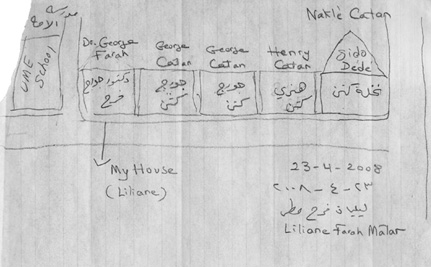 مدرسة الامة
UME School
Naklè Catan
Dr. George Farah
George Catan
George Catan
Henry Catan
Sido Dedè
دكتور جورج فرح
جورج كتن
جورج كتن
هنري كتن
نخلة كتن
My House
(Liliane)
23-4-2008
٢٣-٤-٢٠٠٨
ليليان فرح مطر
Liliane Farah Matar